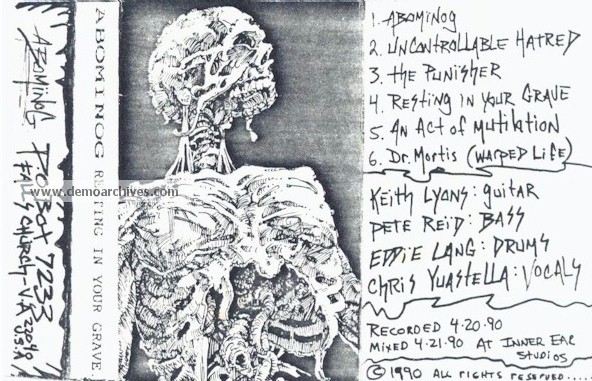 ABOMINOG
PO BOX 7233
FALLS CHURCH-VA
22046
U.S.A
ABOMINOG RESTING IN YOUR GRAVE
www.demoarchives.com
1. ABOMINOG
2. UNCONTROLLABLE HATRED
3. THE PUNISHER
4. RESTING IN YOUR GRAVE
5. AN ACT OF MUTILATION
6. DR. MORTIS (WARPED LIFE)
KEITH LYONS: GUITAR
PETE REID: BASS
EDDIE LANG: DRUMS
CHRIS YUASTELLA: VOCALS
RECORDED 4.20.90
MIXED 4.21.90 AT INNER EAR
STUDIOS
© 1990 ALL RIGHTS RESERVED.....